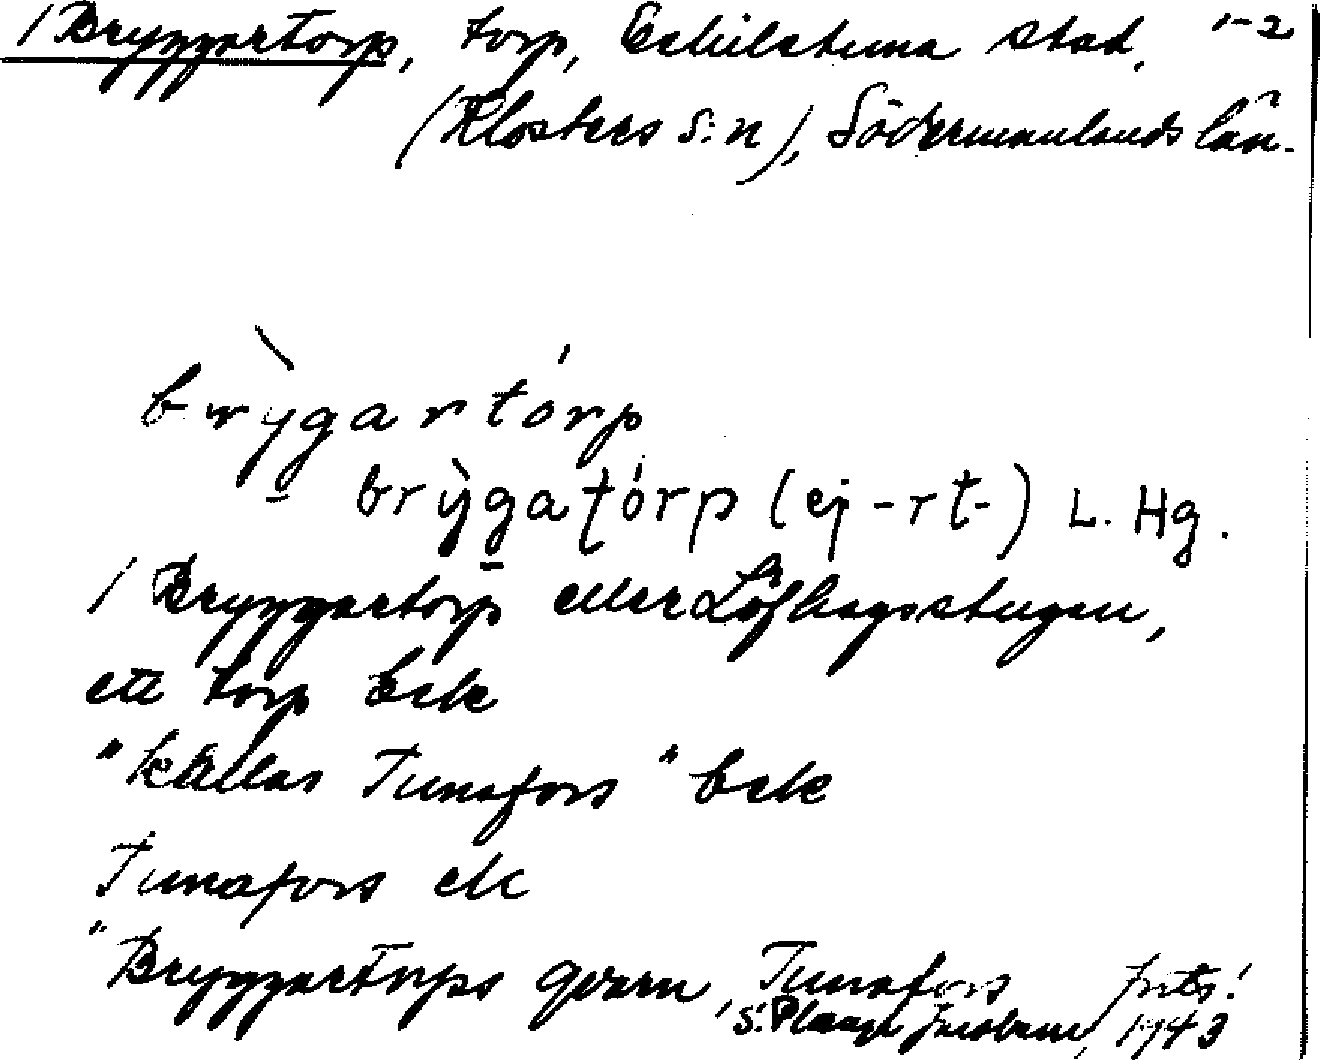 / Bryggartorp, torp, Eskilstuna stad, 1-2
(Klosters s:n), Södermanlands län.
brỳgartórp
brỳgatórp (ej -rt-) L. Hg.
/ Bryggartorp eller Löfhagsstugan,
ett torp Eek
"kallas Tunafors" Eek
Tunafors etc
"Bryggartorps qvarn, Tunafors forts!
1943